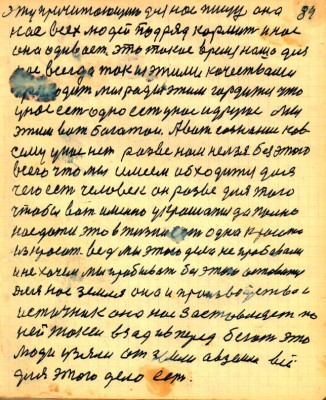 эту причитающую для нас пищу она
нас всех людей подряд кормит и нас
она одивает это такое время нашо для
нас всегда так и этими качествами
приходит мы ради этим гордится что
у нас есть одно есть у нас и другое мы
этим вот богатои. А вот сознании ков
сему у нас нет разве нам нельзя без этого
всего что мы имеем обходится для
чего есть человек он разве для того
чтобы вот именно украшатица только
наедатся это в жизни есть одна красота
из красот. ведь мы этого дела не пробовали
и не хочем мы пробывать без этого оставатся
для нас земля она и производства и
источник она нас заставляет по
ней также взад и вперед бегать это
люди взяли от земли а взели всё
для этого дело есть.
84